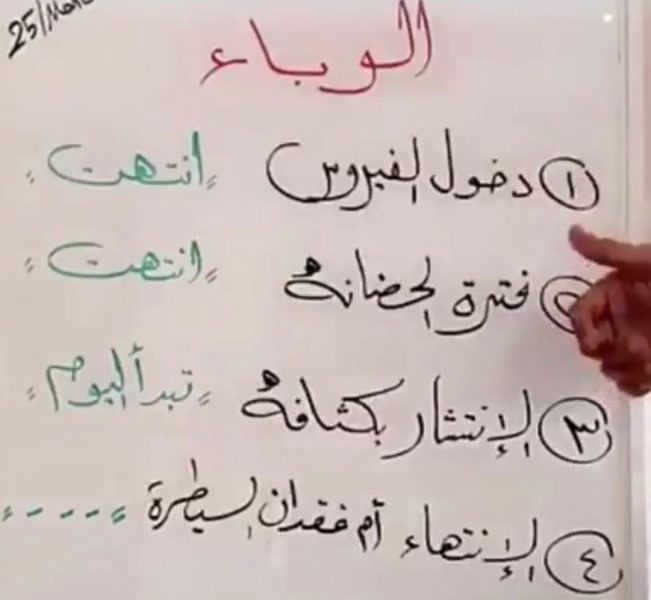 25/March
الوباء
١ دخول الفيروس "انتهت"
٢ فترة الحضانة "انتهت"
٣ الإنتشار بكثافة "تبدأ اليوم"
٤ الإنتهاء أم فقدان السيطرة "----"